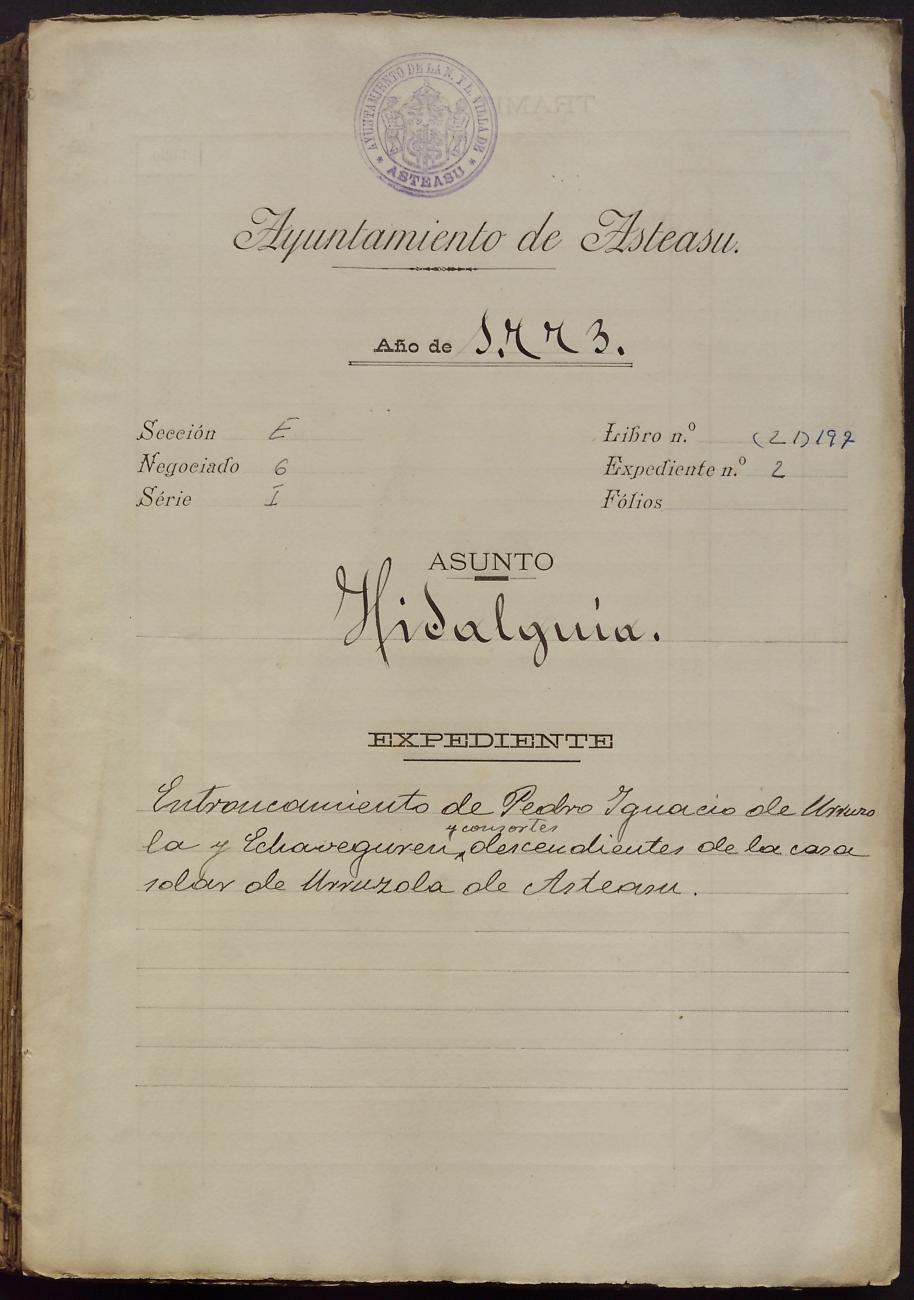 AYUNTAMIENTO DE LA N. Y L. VILLA DE
* ASTEASU *
Ayuntamiento de Asteasu.
Año de 1.773.
Sección E
Libro n.º (21)197
Negociado 6
Expediente n.º 2
Série I
Fólios
ASUNTO
Hidalguía.
EXPEDIENTE
Entroncamiento de Pedro Ignacio de Urruzo
y consortes
la y Echaveguren, descendientes de la casa
solar de Urruzola de Asteasu.